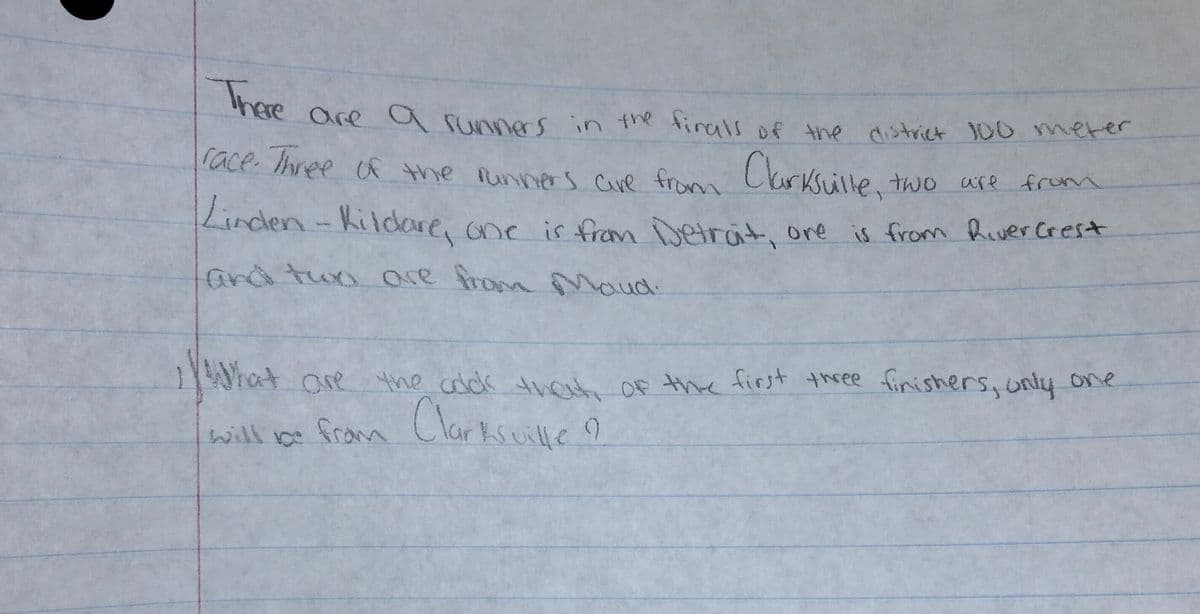 There are 9 runners in the finals of the district 100 meter
race. Three of the runners are from Clarksville, two are from
Linden - Kildare, one is from Detroit, one is from Rivercrest
and two are from Maud.
1) What are the odds that, of the first three finishers, only one
will be from Clarksville?